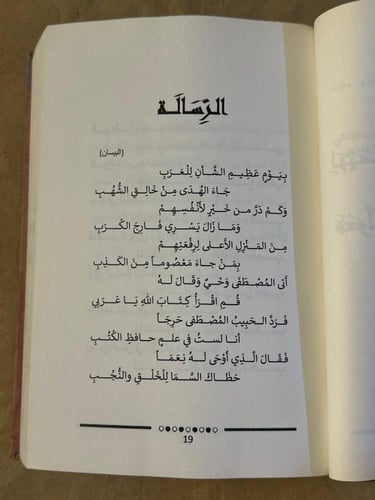 الرِّسَالَة
(البيسان)
بِيَوْمٍ عَظِيمِ الشَّأنِ لِلْعَرَبِ
جَاءَ الهُدَى مِنْ خَالِقِ الشُّهُبِ
وَكَمْ دَرَّ من خَيْرٍ لأَنْفُسِهِمْ
وَمَا زَالَ يَسْرِي فَارِجَ الكُرَبِ
مِنَ المَنْزِلِ الأَعلَى لِرِفْعَتِهِمْ
بِمَنْ جاءَ مَعْصُوماً مِنَ الكَذِبِ
أتَى المُصْطَفَى وَحْيٌ وَقَالَ لَهُ
قُمِ اقْرَأْ كِتَابَ اللهِ يَا عَرَبي
فَرَدَّ الحَبِيبُ المُصْطَفَى حَرِجَاً
أنا لستُ في علمٍ حافظِ الكُتُبِ
فَقَالَ الَّذِي أَوْحَى لَهُ نِعَمَاً
حَظَاكَ السَّمَا لِلْخَلْقِ والنُّجُبِ
19